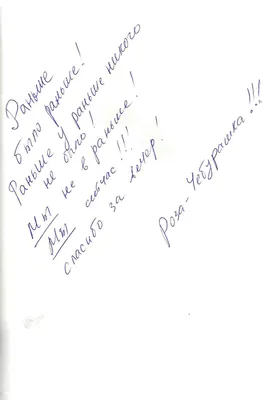 Раньше
было раньше!
Раньше у раньше никого
не было!
Мы не в раньше!
Мы сейчас!!!
спасибо за вечер!
Роза-Чебурашка!!!